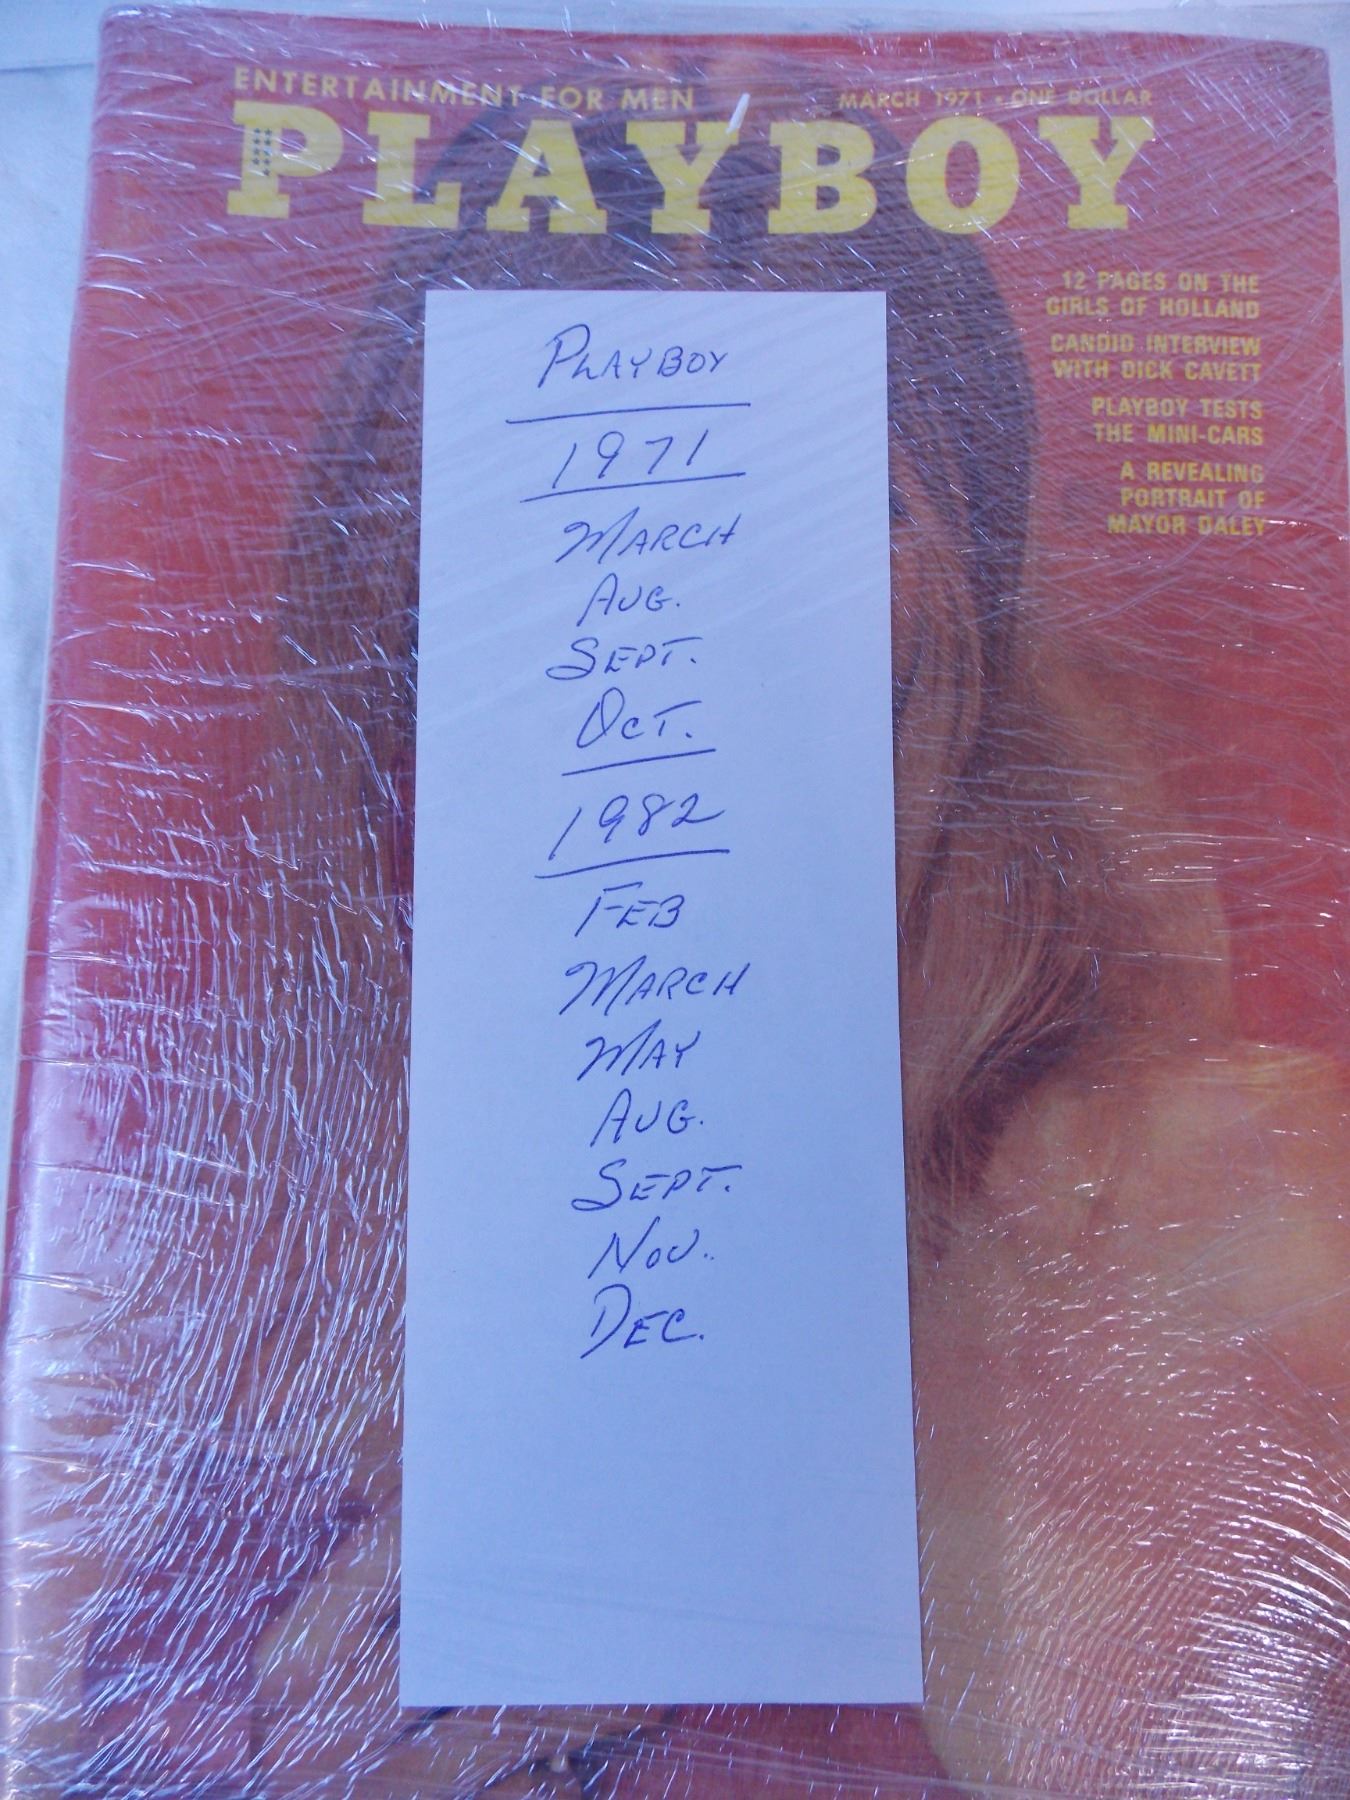 ENTERTAINMENT FOR MEN
MARCH 1971 • ONE DOLLAR
PLAYBOY
12 PAGES ON THE
GIRLS OF HOLLAND
CANDID INTERVIEW
WITH DICK CAVETT
PLAYBOY TESTS
THE MINI-CARS
A REVEALING
PORTRAIT OF
MAYOR DALEY
PLAYBOY
1971
MARCH
AUG.
SEPT.
OCT.
1982
FEB
MARCH
MAY
AUG.
SEPT.
NOV.
DEC.